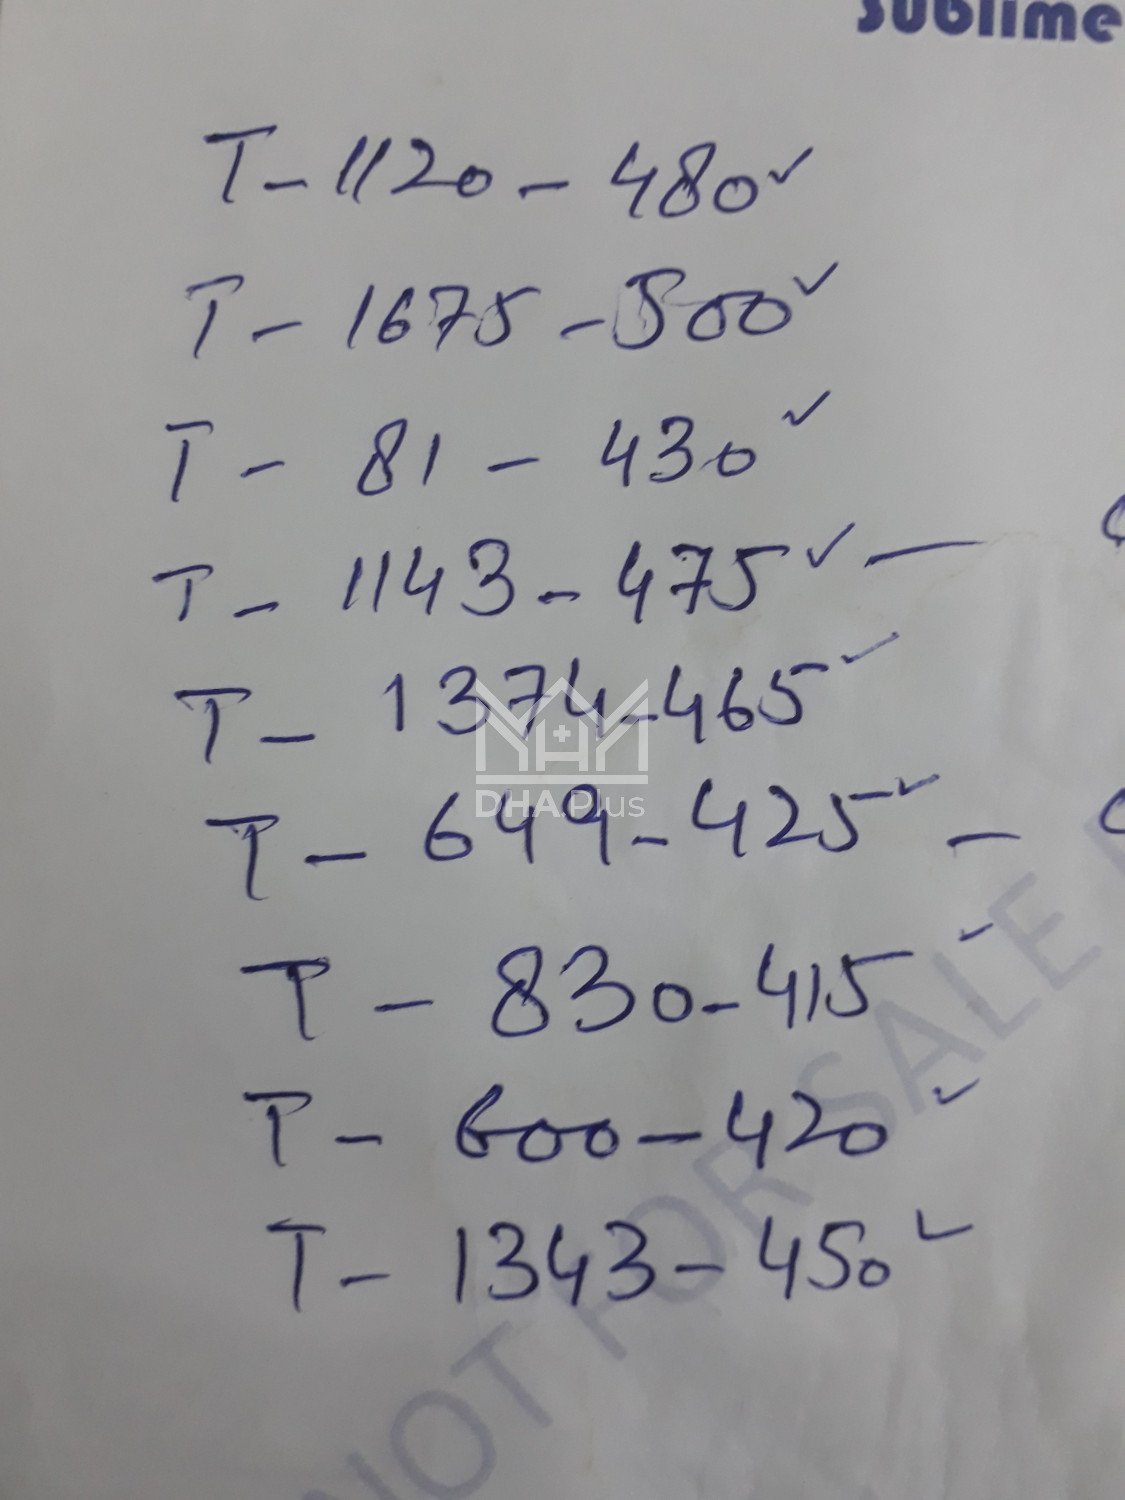 sublime
T - 1120 - 480 ✓
T - 1675 - 500 ✓
T - 81 - 430 ✓
T - 1143 - 475 ✓ —
T - 1374 - 465 ✓
DHA.Plus
T - 649 - 425 ✓ —
T - 830 - 415 ✓
T - 600 - 420 ✓
T - 1343 - 450 ✓
NOT FOR SALE